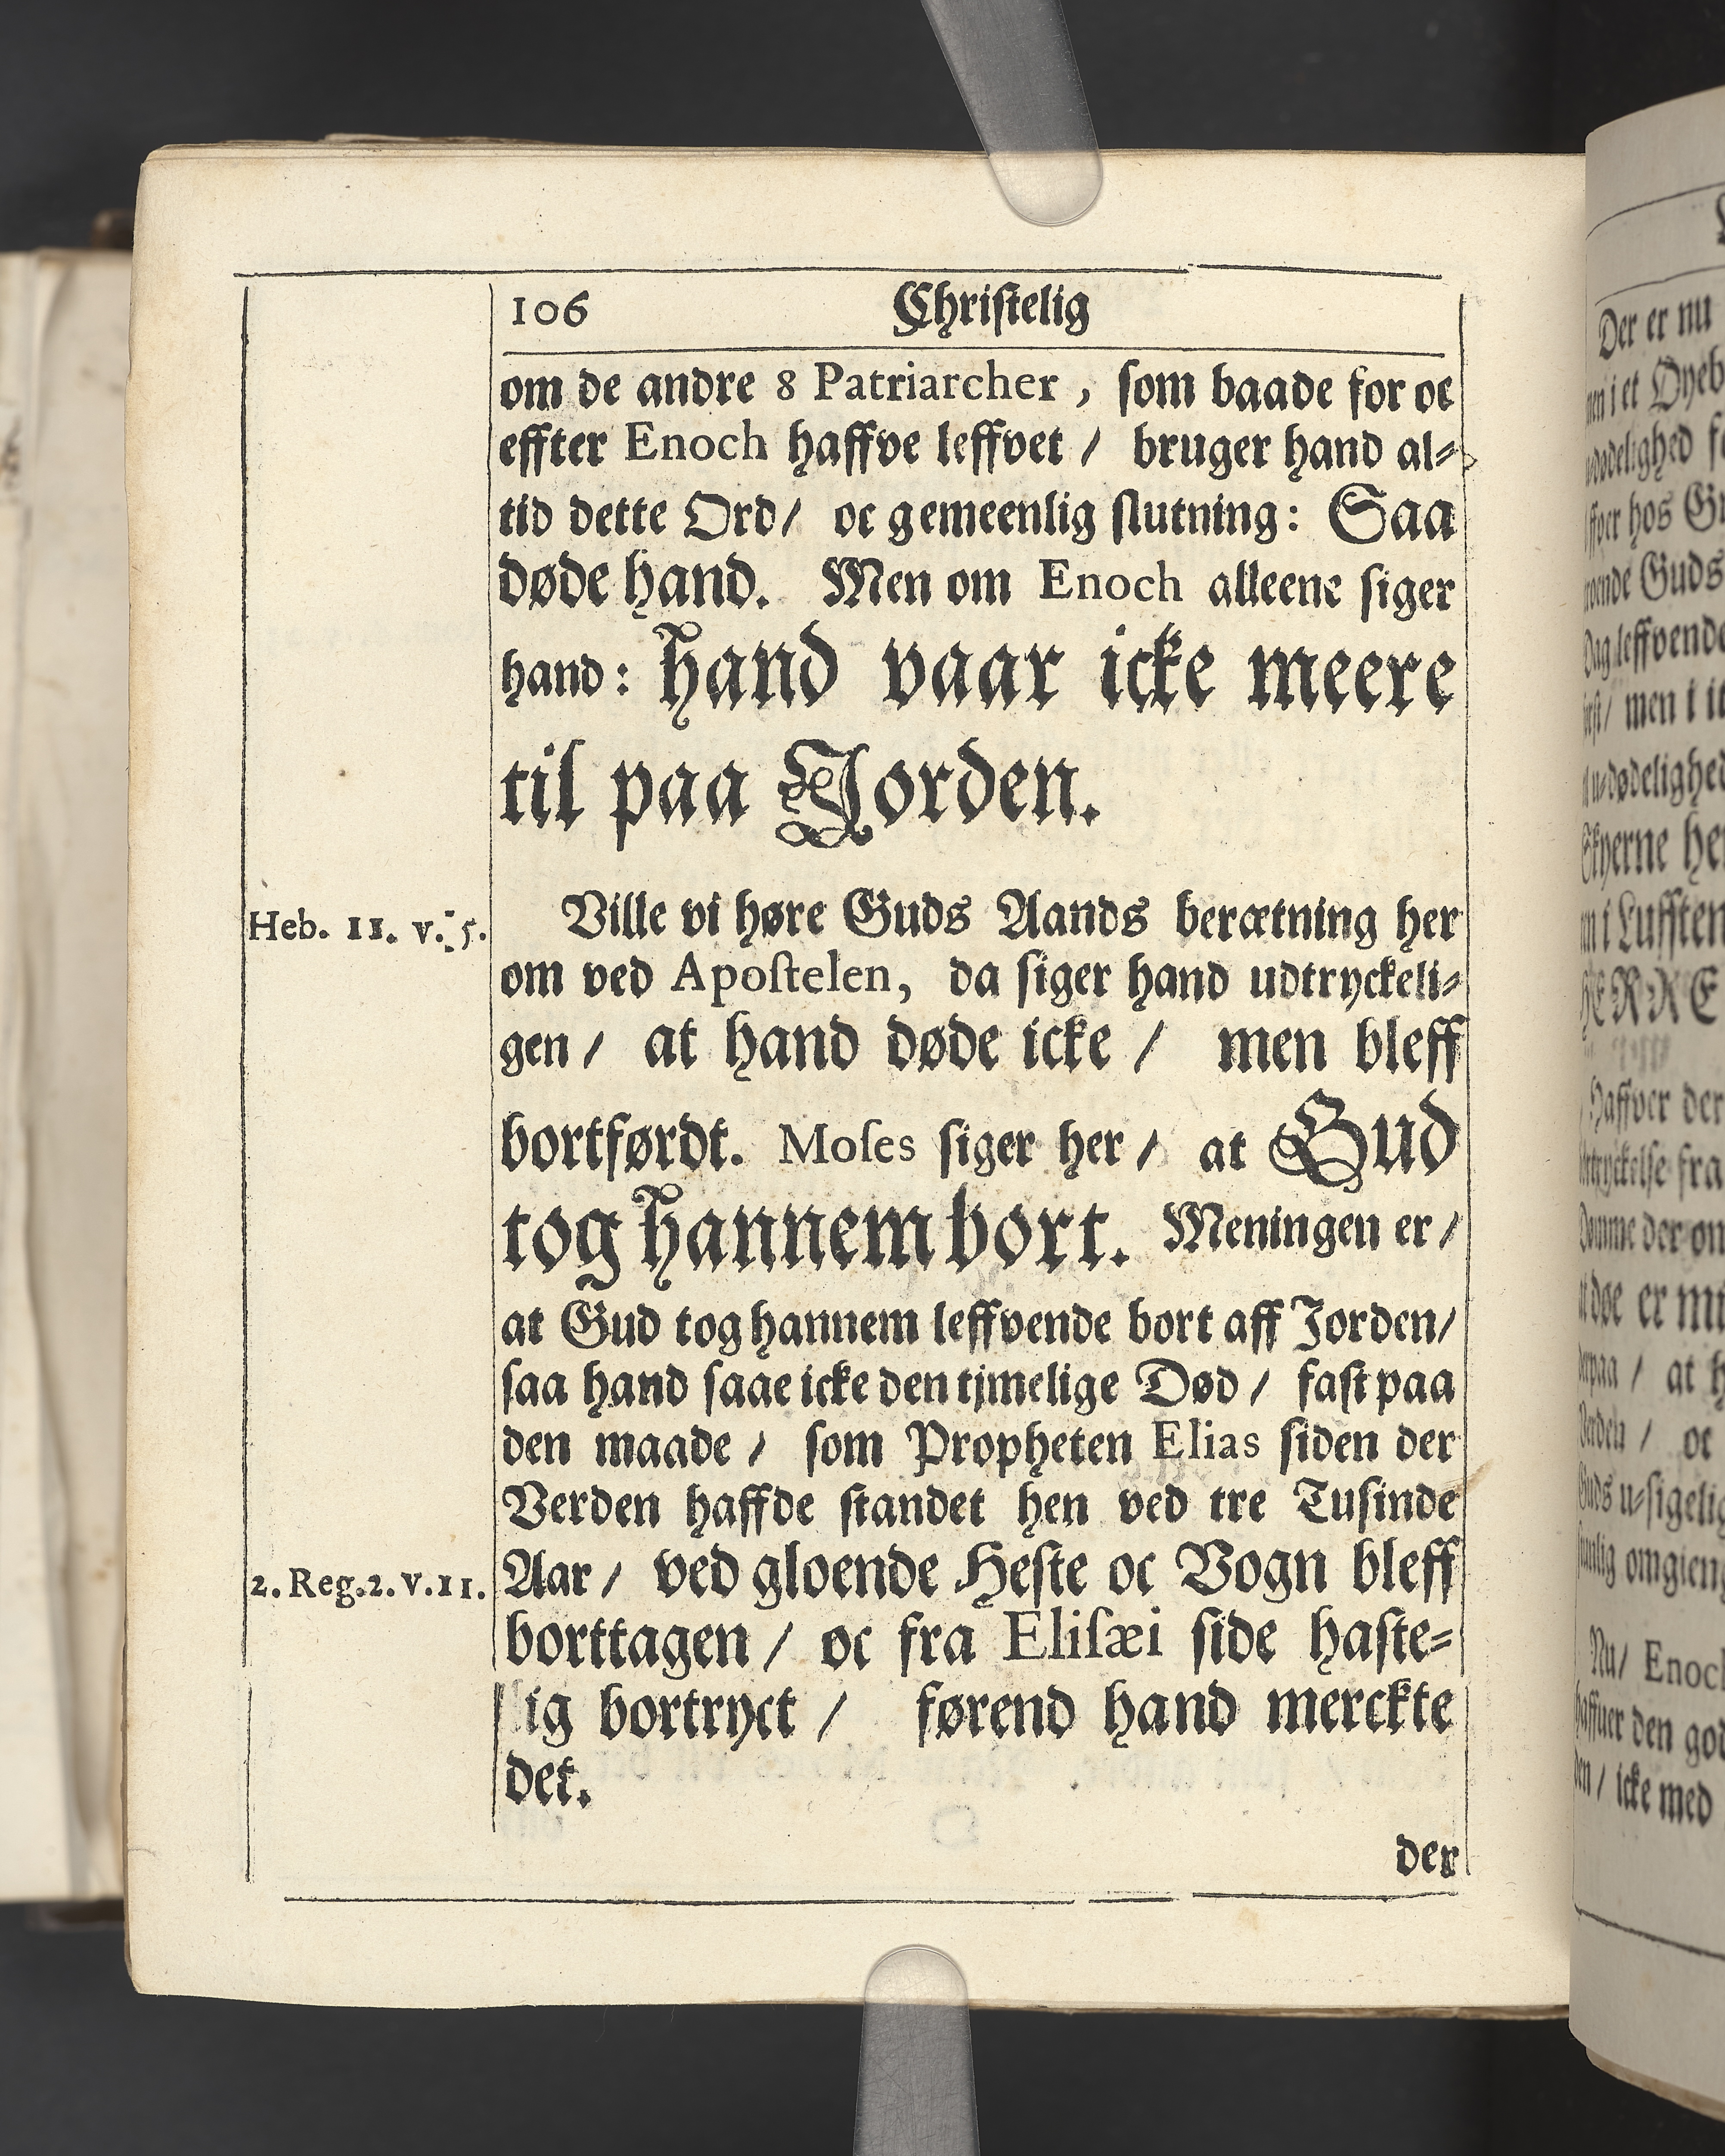 106 Christelig
om de andre 8 Patriarcher, som baade for oc
effter Enoch haffve leffvet / bruger hand al⸗
tid dette Ord/ oc gemeenlig slutning: Saa
døde hand. Men om Enoch alleene siger
hand: hand vaar icke meere
til paa Jorden.
Heb. 11. v. 5.
Ville vi høre Guds Aands berætning her
om ved Apostelen, da siger hand udtryckeli⸗
gen / at hand døde icke / men bleff
bortførdt. Moses siger her / at Gud
tog hannem bort. Meningen er /
at Gud tog hannem leffvende bort aff Jorden/
saa hand saae icke den tjmelige Død / fast paa
den maade / som Propheten Elias siden der
Verden haffde standet hen ved tre Tusinde
2. Reg. 2. v. 11.
Aar / ved gloende Heste oc Vogn bleff
borttagen / oc fra Elisæi side haste⸗
lig bortryct / førend hand merckte
det.
der
Der er nu
u⸗dødelighed
Skyerne
HERRE
Haffver der
at døe er
Nu/ Enoch
haffuer den
icke med